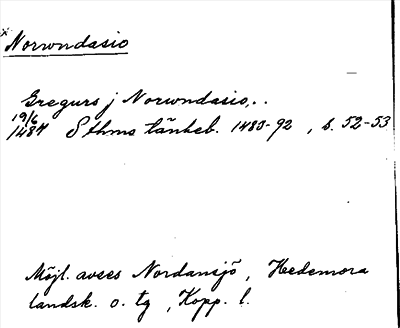 x Norwndasio
Gregurs j Norwndasio..
19/6
1487 Sthms tänkeb. 1483-92, s. 52-53
Möjl. avses Nordansjö, Hedemora
landsk. o. tg, Kopp. l.